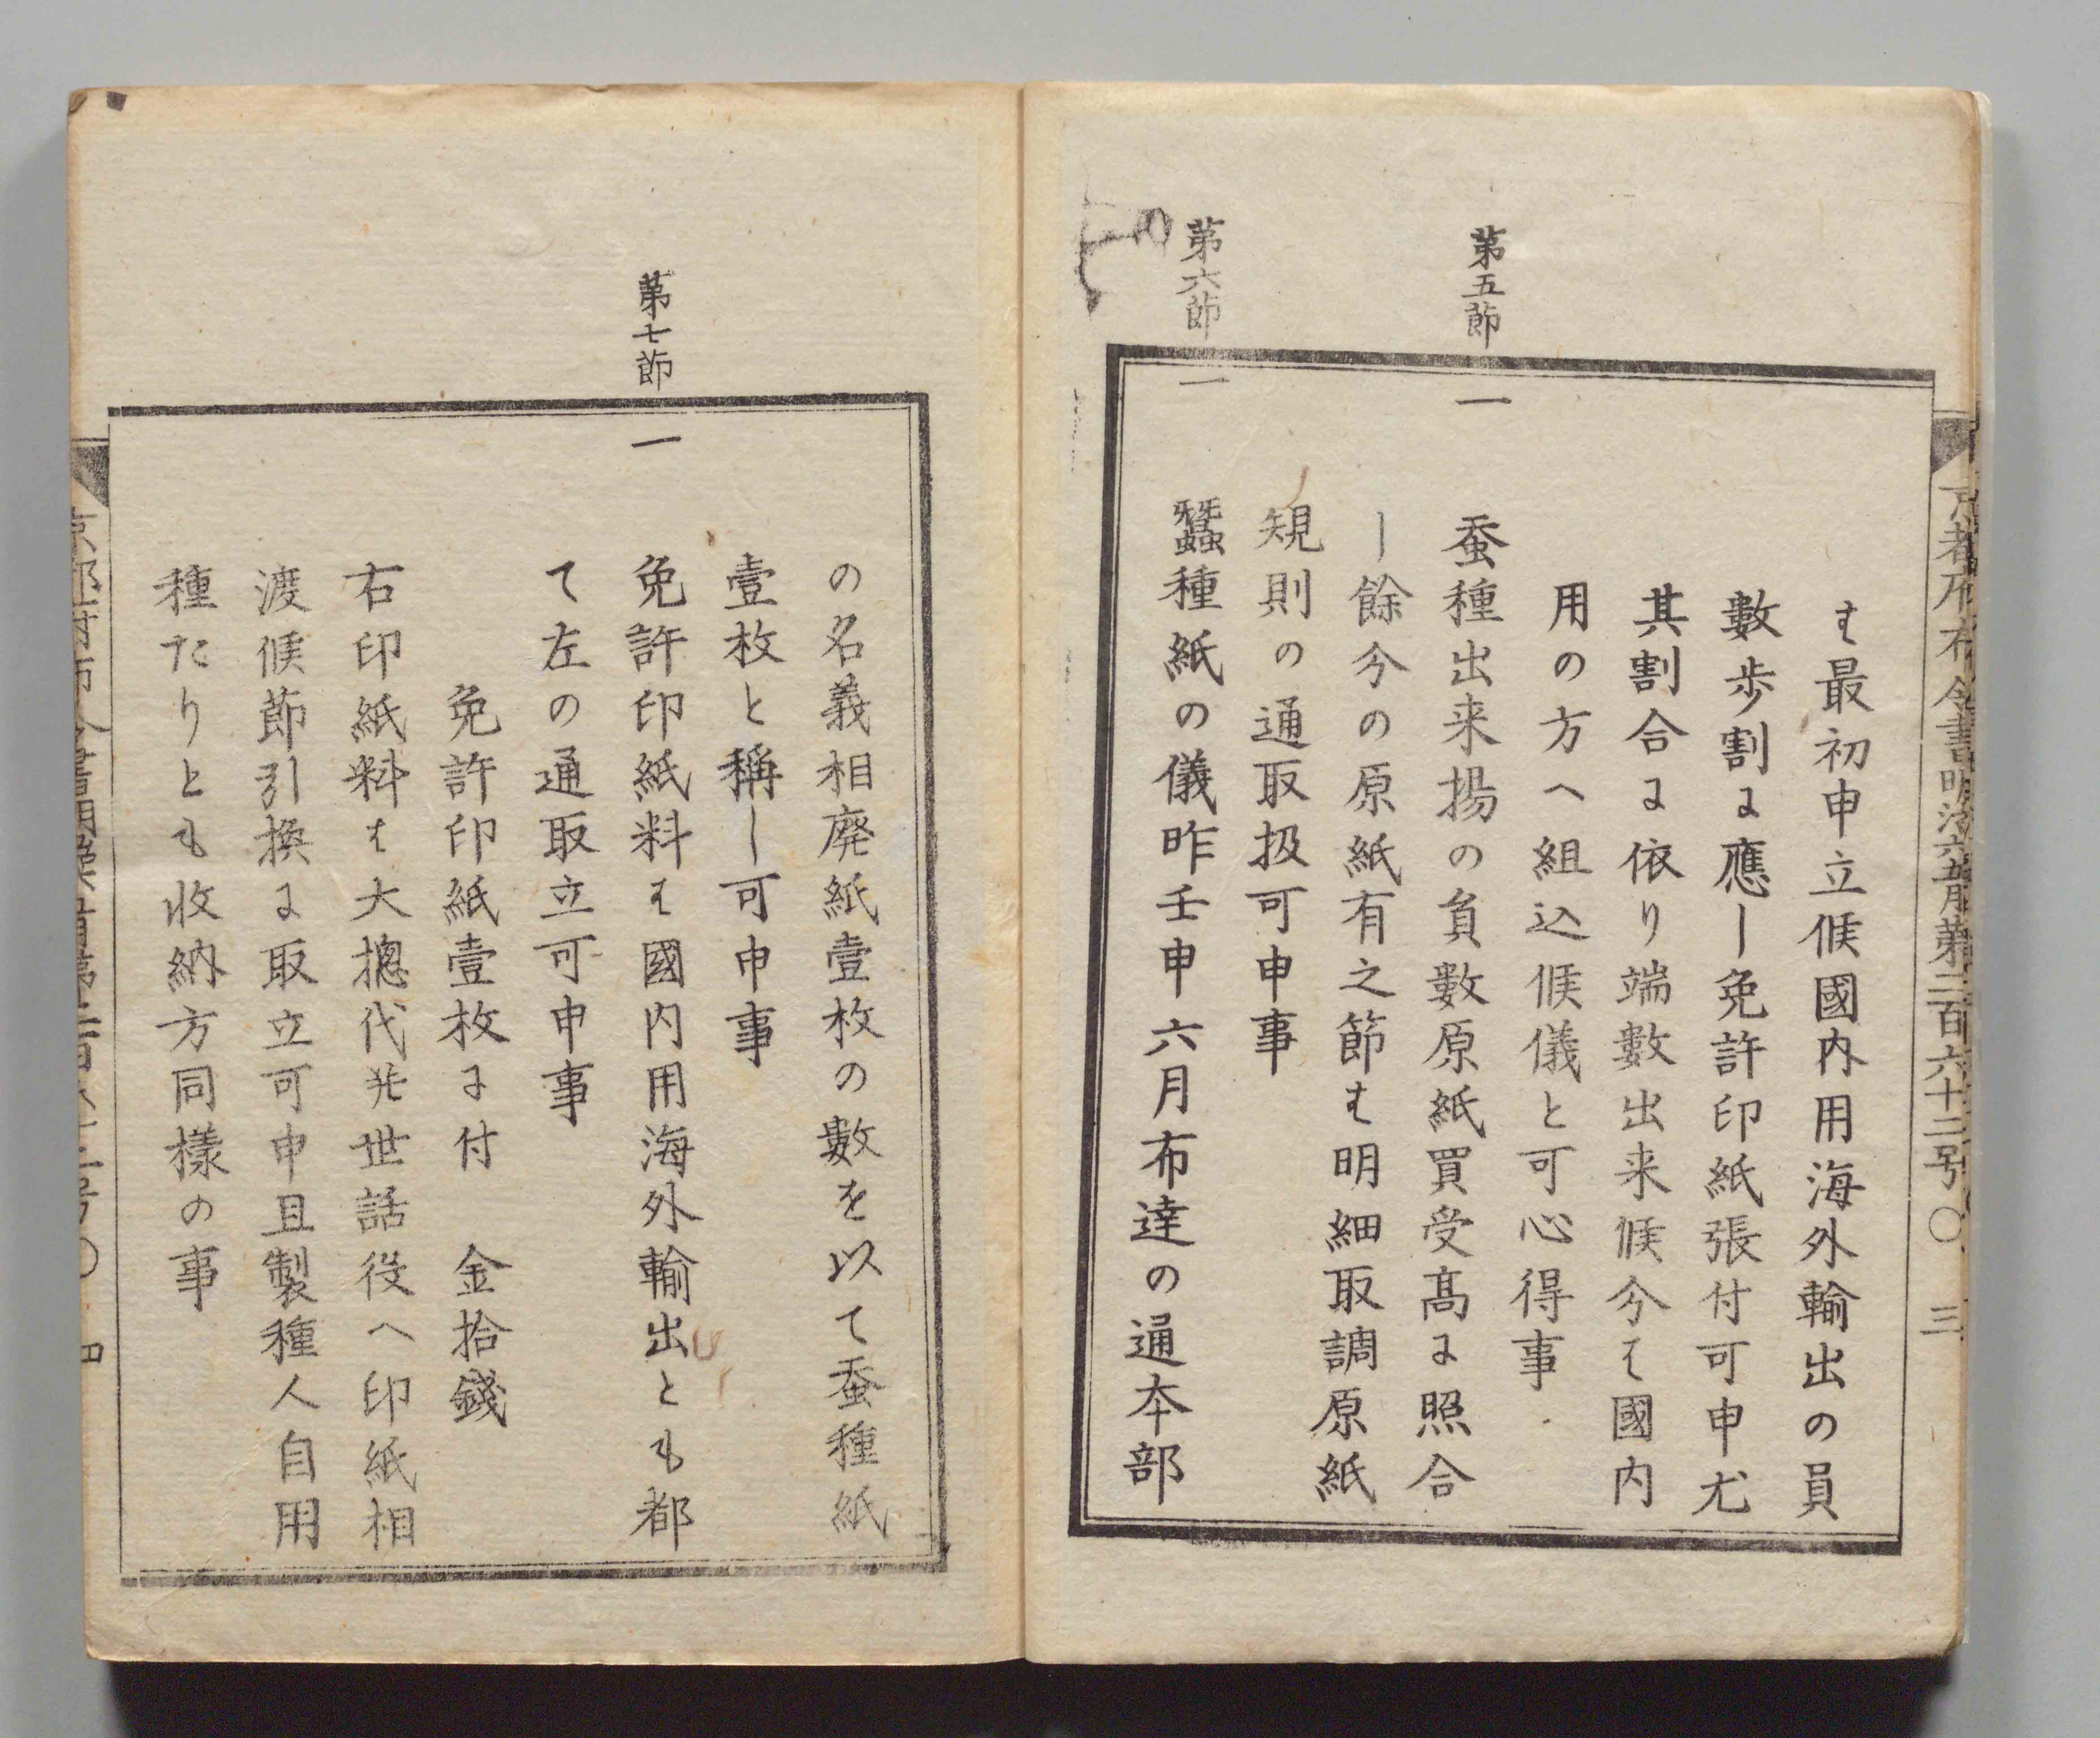 京都府布令書明治六年五月第二百六十三号〇三
は最初申立候國内用海外輸出の員
數歩割に應し免許印紙張付可申尤
其割合に依り端數出来候分は國内
用の方へ組込候儀と可心得事
第五節
一 蚕種出来揚の負數原紙買受髙に照合
し餘分の原紙有之節は明細取調原紙
規則の通取扱可申事
第六節
一 蠶種紙の儀昨壬申六月布達の通本部
の名義相廃紙壹枚の數を以て蚕種紙
壹枚と稱し可申事
第七節
一 免許印紙料は國内用海外輸出とも都
て左の通取立可申事
免許印紙壹枚に付 金拾錢
右印紙料は大摠代幷世話役へ印紙相
渡候節引換に取立可申且製種人自用
種たりとも收納方同樣の事
〇四